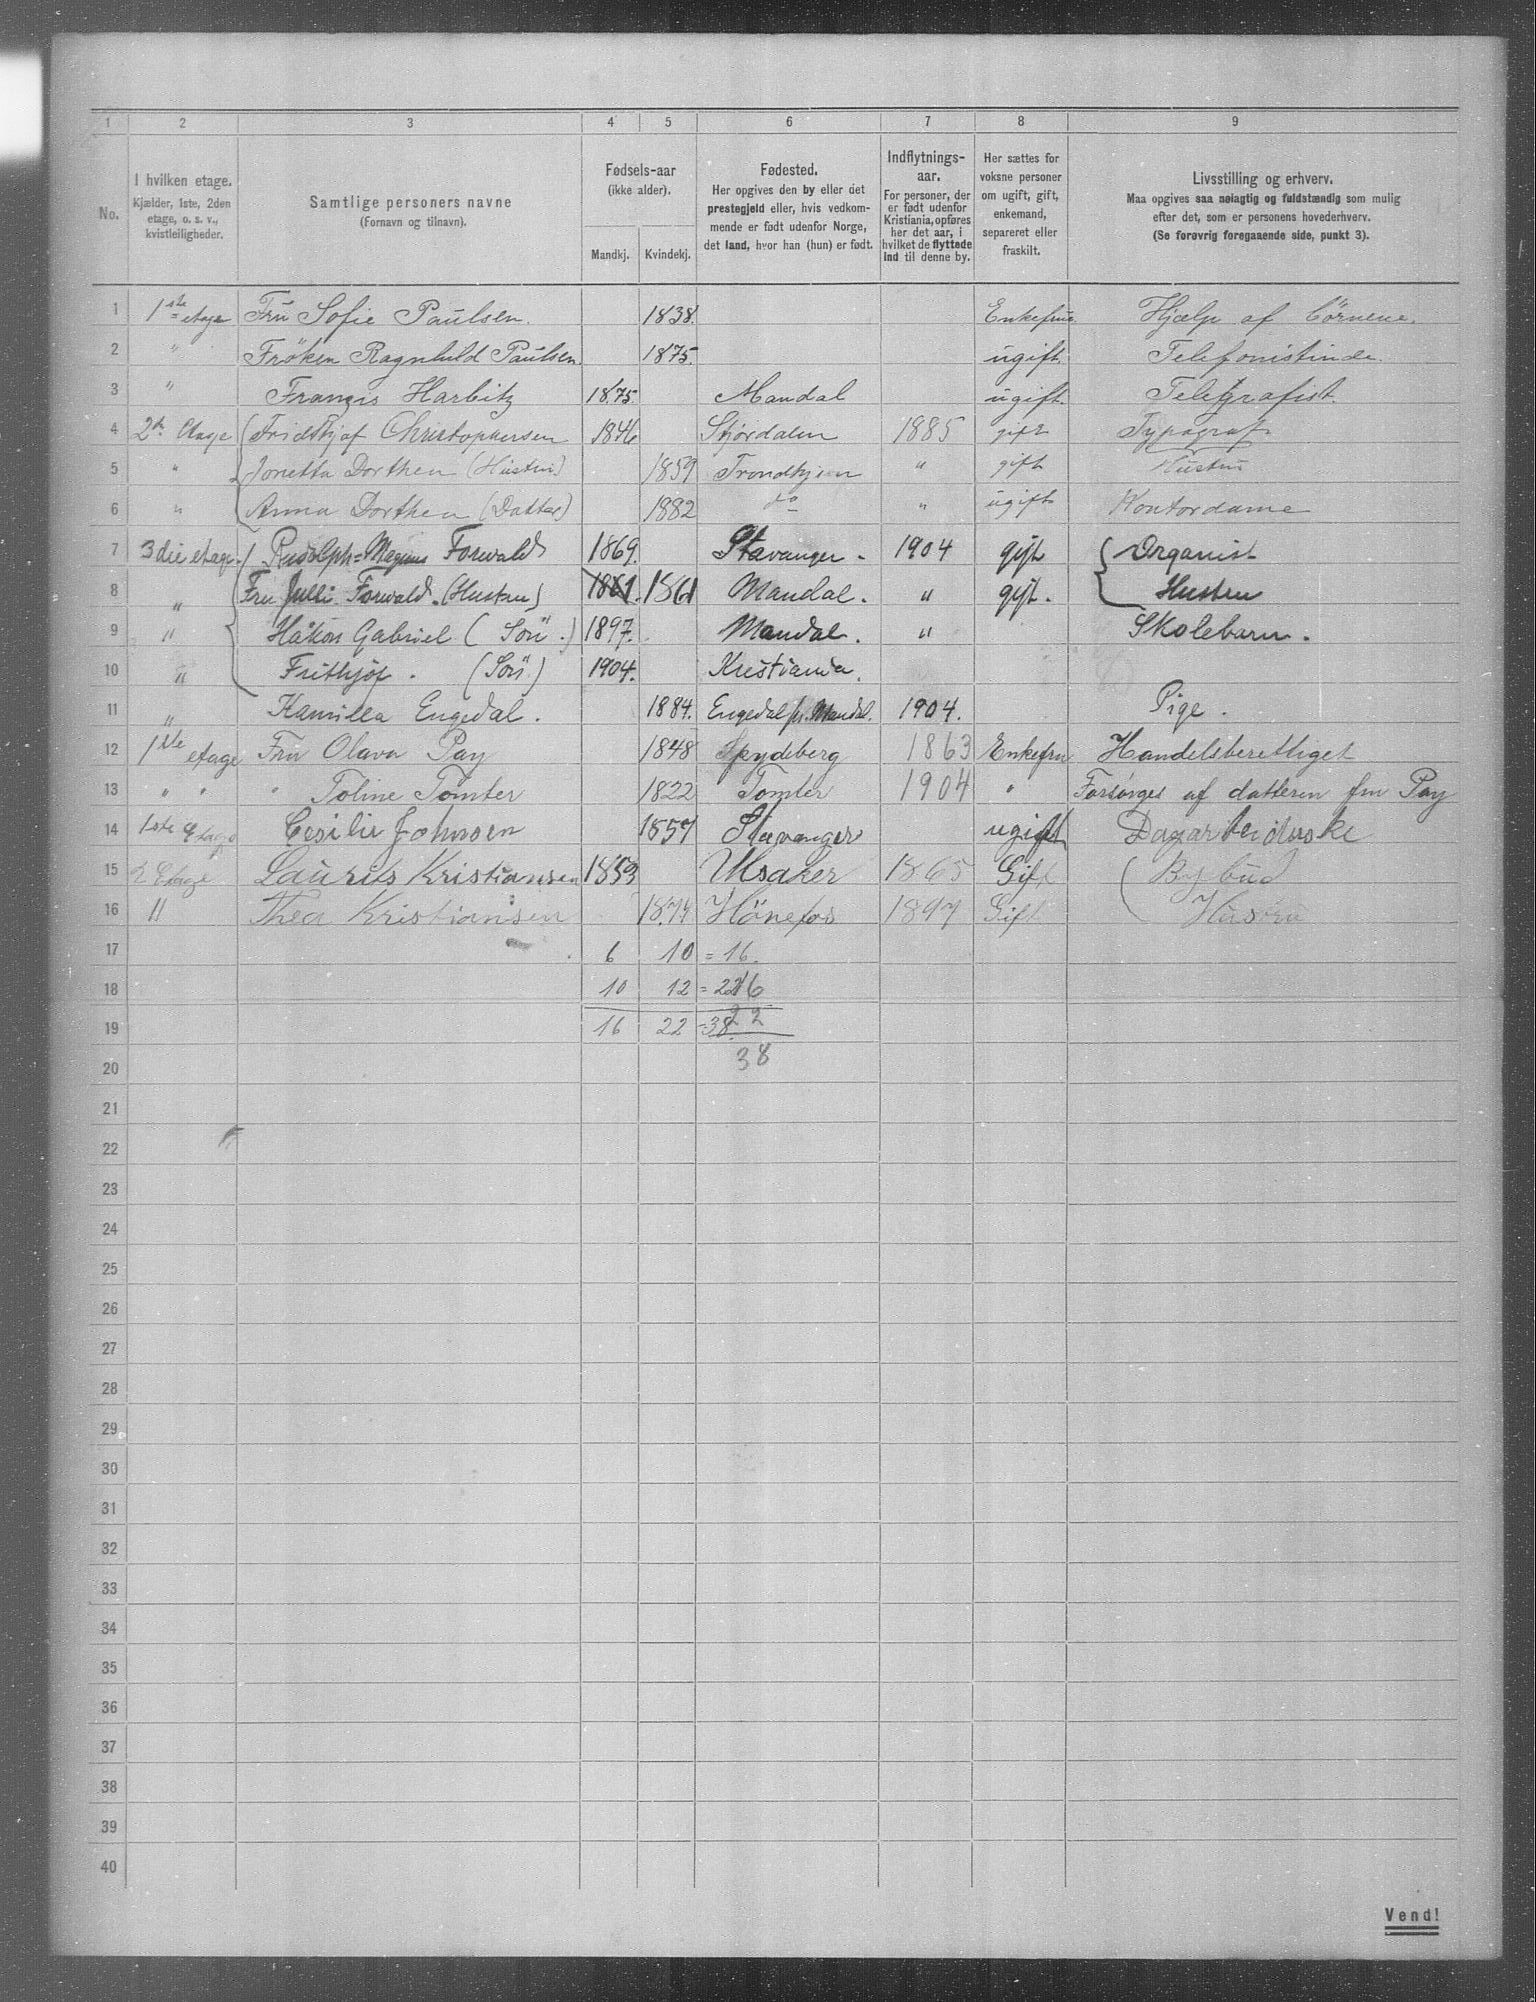 1 2 3 4 5 6 7 8 9
No. I hvilken etage. Kjælder, 1ste, 2den etage, o. s. v., kvistleiligheder. Samtlige personers navne (Fornavn og tilnavn). Fødsels-aar (ikke alder). Mandkj. Kvindekj. Fødested. Her opgives den by eller det prestegjeld eller, hvis vedkommende er født udenfor Norge, det land, hvor han (hun) er født. Indflytnings-aar. For personer, der er født udenfor Kristiania, opføres her det aar, i hvilket de flyttede ind til denne by. Her sættes for voksne personer om ugift, gift, enkemand, separeret eller fraskilt. Livsstilling og erhverv. Maa opgives saa nøiagtig og fuldstændig som mulig efter det, som er personens hovederhverv. (Se forøvrig foregaaende side, punkt 3).
1 1ste etage Fru Sofie Paulsen. 1838. Enkefrue Hjælp af Börnene.
2 " Fröken Ragnhild Paulsen 1875. ugift. Telefonistinde.
3 " Francis Harbitz 1875. Mandal ugift. Telegrafist.
4 2den Etage Fridthjof Christophersen 1846 Stjørdalen 1885 gift Typograf
5 " Jonetta Dorthea (Hustru) 1859 Trondhjem " gift Hustru
6 " Anna Dorthea (Datter) 1882 do " ugift Kontordame
7 3die etage. Rudolph=Magnus Forwald 1869. Stavanger. 1904 gift Organist
8 " Fru Julli Forwald. (Hustru) 1861. 1861 Mandal. " gift. Hustru
9 " Håkon Gabriel (Sön.) 1897. Mandal. " Skolebarn.
10 " Frithjof. (Sön.) 1904. Kristiania.
11 " Kamilla Engedal. 1884. Engedal pr. Mandal. 1904. Pige.
12 1ste etage Fru Olava Pay 1848 Spydeberg 1863 Enkefru Handelsberettiget
13 " " " Toline Tomter 1822 Tomter 1904 " Forsørges af datteren fru Pay
14 1ste Etage Cesilie Johnsen 1857 Stavanger ugift Dagarbeiderske
15 2 Etage Laurits Kristiansen 1853 Ulsaker 1865 Gift Bybud
16 " Thea Kristiansen 1874 Hönefos 1897 Gift Hustru
17 6 10 = 16.
18 10 12 = 22 16
19 16 22 = 38. 22
20 38
21
22
23
24
25
26
27
28
29
30
31
32
33
34
35
36
37
38
39
40
Vend!